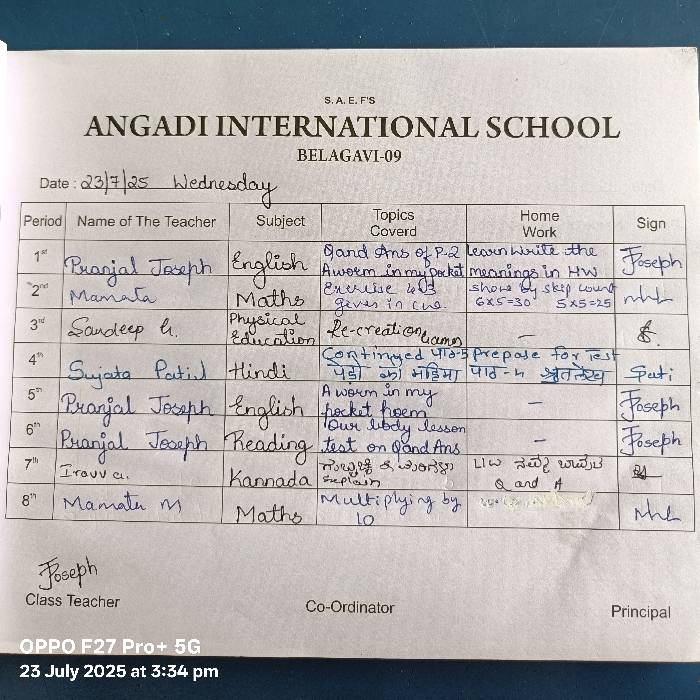 S. A. E. F'S
ANGADI INTERNATIONAL SCHOOL
BELAGAVI-09
Date : 23/7/25 Wednesday
Period Name of The Teacher Subject Topics Coverd Home Work Sign
1st Pranjal Joseph English Q and Ans of P-2 Learn write the Joseph
A worm in my pocket meanings in HW
2nd Mamata Maths Exercise show by skip count
given in cw. 6x5=30 5x5=25
3rd Sandeep G. Physical Education Re-creation Games –
4th Sujata Patil Hindi Continued पाठ-5 prepare for Test
पेड़ों की महिमा पाठ-4 श्रुतलेख
5th Pranjal Joseph English A worm in my – Joseph
pocket poem
6th Pranjal Joseph Reading Our body lesson – Joseph
test on Q and Ans
7th Kannada
explain Q and A
8th Mamata M Maths Multiplying by
10
Joseph
Class Teacher Co-Ordinator Principal
OPPO F27 Pro+ 5G
23 July 2025 at 3:34 pm